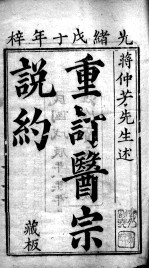 光緒戊子年梓
蔣仲芳先生述
重訂醫宗
説約
藏板